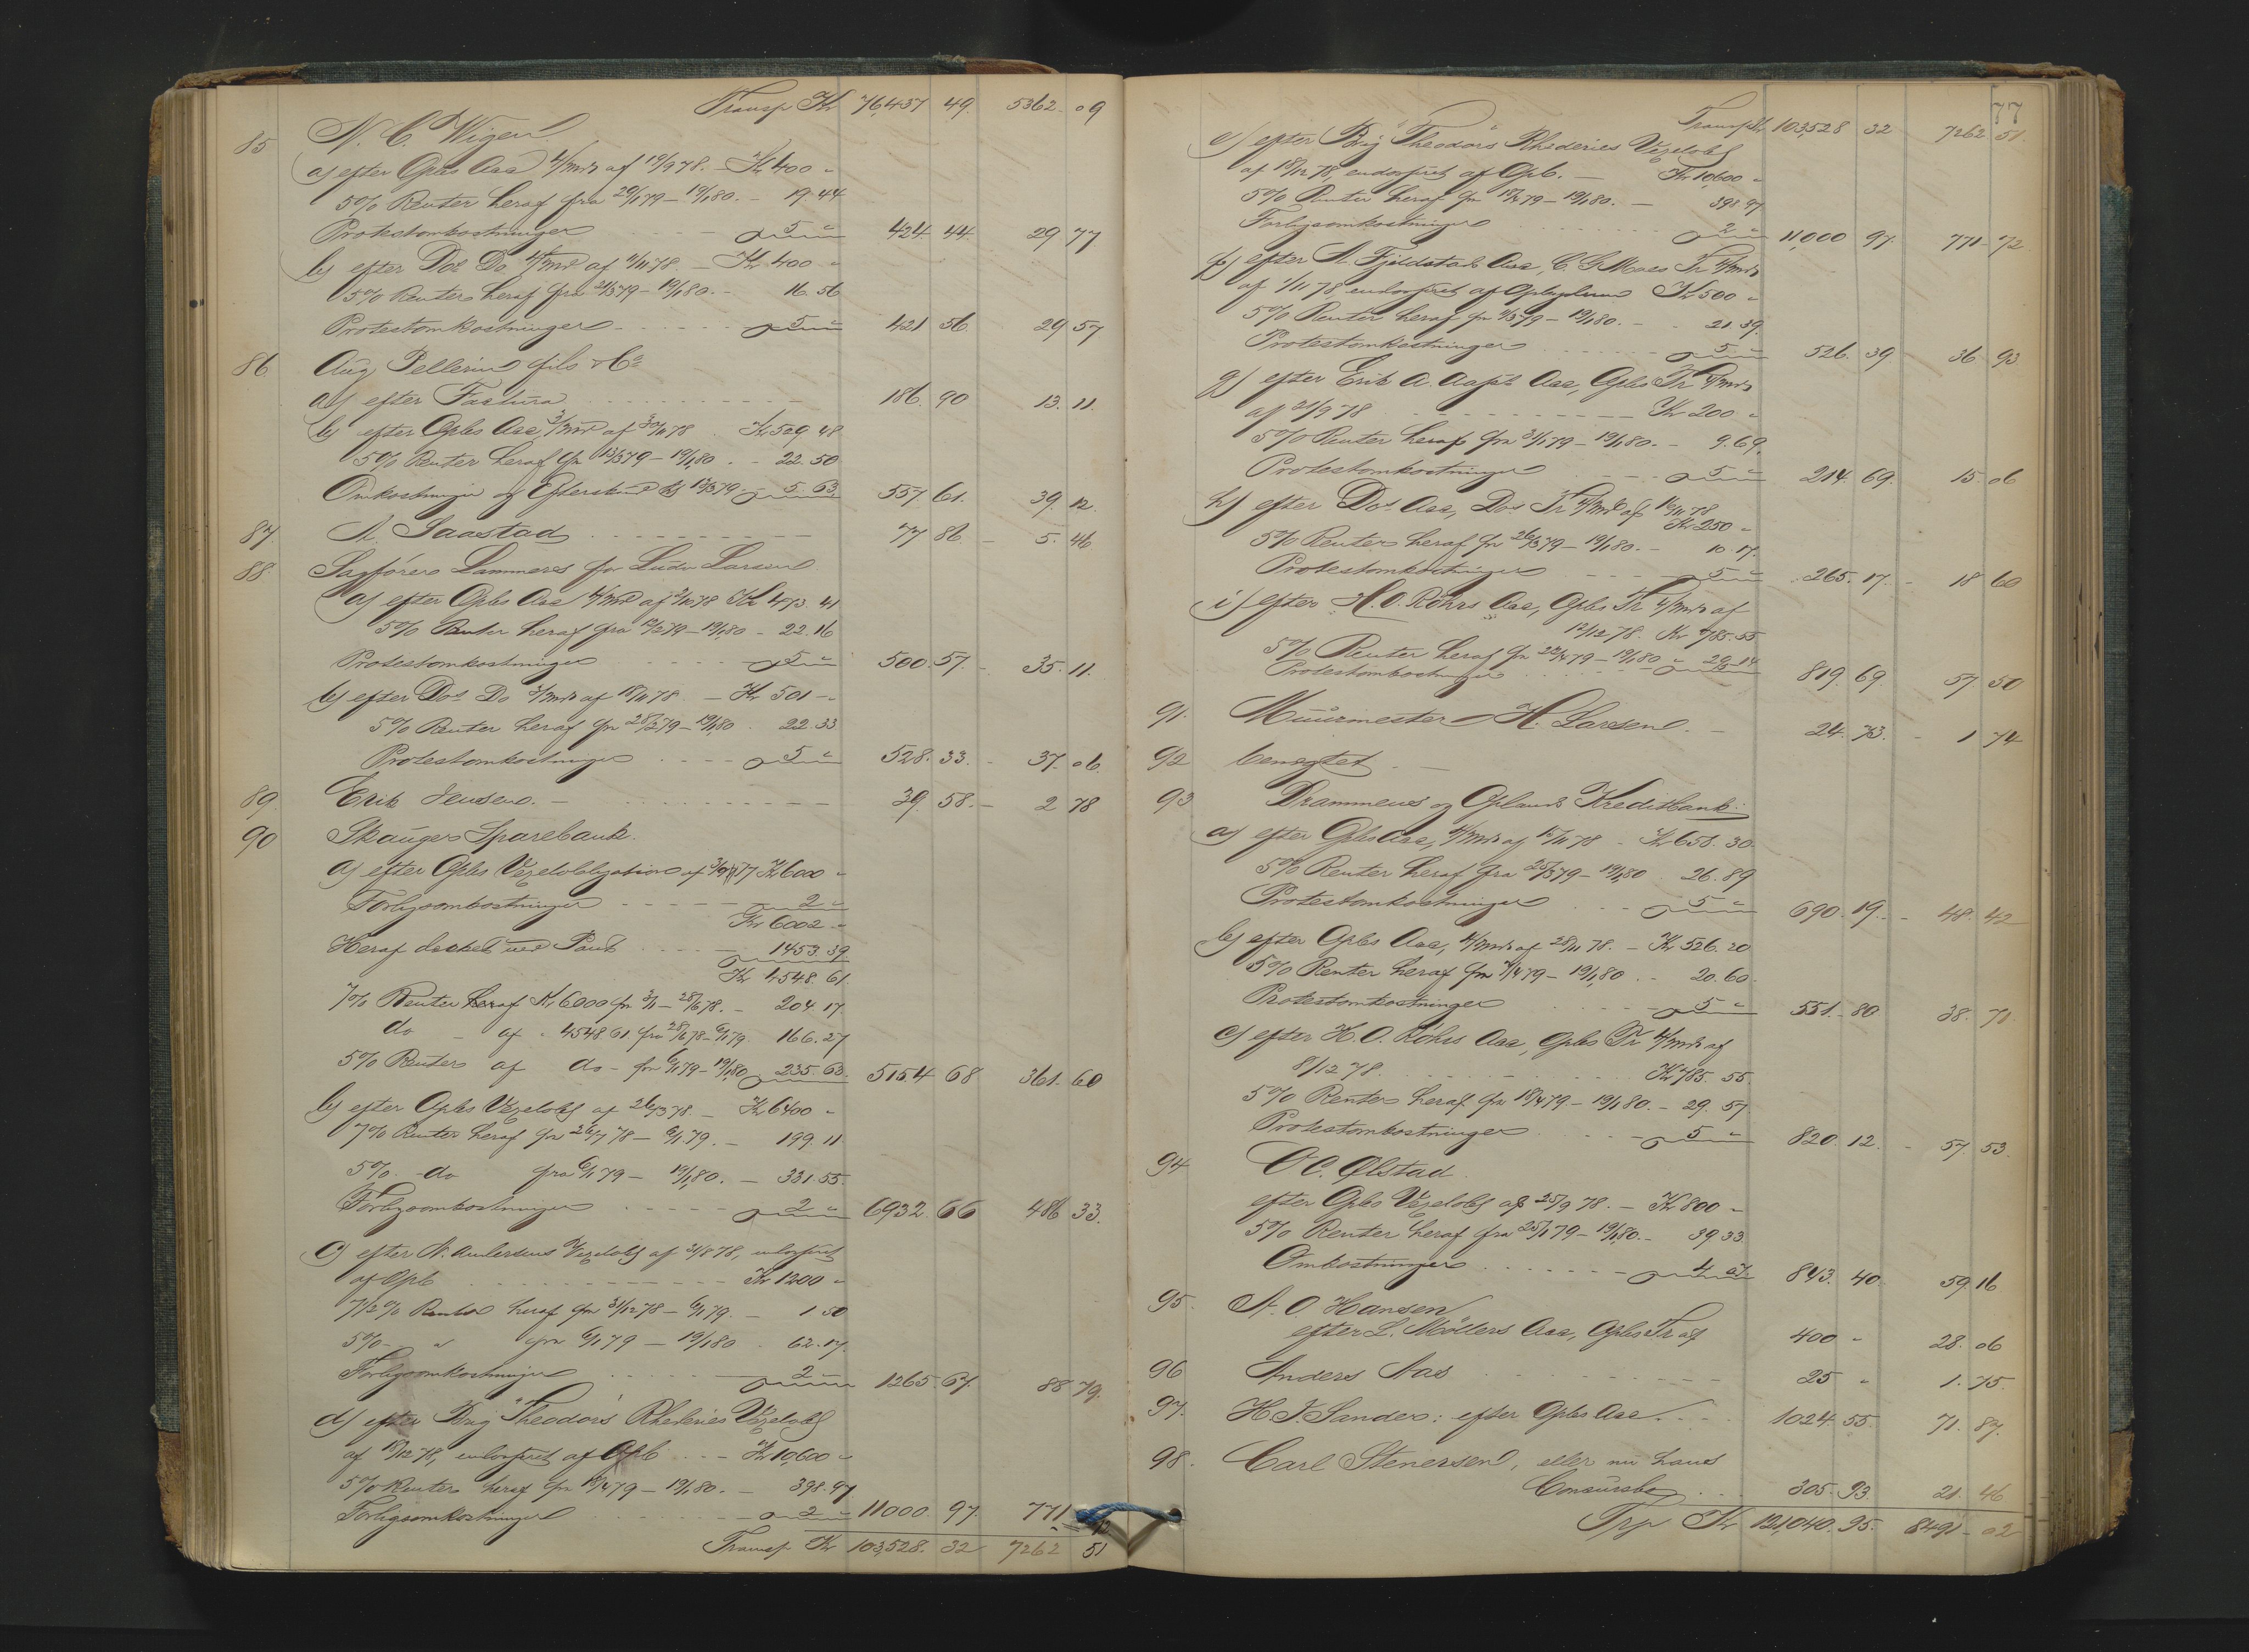 Transp Kr 76,437 49. 5362 09
85 N. C. Wigen
a) efter Opbs Aca 4/mrd af 19/9 78. — Kr 400 "
5% Renter heraf fra 20/1 79 — 19/1 80. - 19.44
Protestomkostninger 5 " 424. 44. 29 77
b) efter Dos Do 4/mrd af /11 78. — Kr 400 "
5% Renter heraf fra 21/3 79 — 19/1 80. - 16.56
Protestomkostninger 5 " 421 56. 29 57
86. Aug Pellerin fils & Co
a) efter Factura 186. 90 13. 11.
b) efter Opbs Aca, 3/mrd af 30/11 78 Kr 529 48
5% Renter heraf fr 13/3 79 — 19/1 80. - 22.50
Omkostninger og 13/3 79 5.63 557. 61. 39. 12.
87. A. Saastad 77 86 5. 46
88. Sagfører Lammers for Ludv Larsen
a) efter Opbs Aca 4/mrd af /10 78 Kr 473. 41
5% Renter heraf fra 12/2 79 — 19/1 80 - 22.16
Protestomkostninger 5 " 500. 57. 35. 11.
b) efter Dos Do 3/mrd af 18/11 78 — Kr 501 "
5% Renter heraf fr 28/2 79 — 19/1 80 . 22.33
Protestomkostninger 5 " 528. 33. 37. 06.
89. Erik Jensen. 39. 58. 2 78
90 Skauger Sparebank.
a) efter Opbs Vexelobligation af 77 Kr 6000 "
Forligsomkostninger 2 "
Kr 6002 "
Heraf dækket ved Pant 1453.39
Kr 4548. 61.
7% Renter heraf Kr 6000 fr 3/1 — 28/6 78. - 204.17.
do - af " 4548 61 fra 28/6 78 — 6/1 79 166.27
5% Renter af do - fra 6/1 79 — 19/1 80 235.63. 5154 68 361. 60
b) efter Opbs Vexelobl af 26/3 78. — Kr 6400 "
7% Renter heraf fra 26/7 78 — 6/1 79. — 199. 11
5% - do fra 6/1 79 — 19/1 80. — 331.55.
Forligsomkostninger 2 " 6932. 66 486 33.
c) efter A. Andersens Vexelobl af 31/8 78, endosseret
af Opb Kr 1200 "
7 1/2 % Renter heraf fra 31/12 78 — 6/1 79. - 1 50
5% - " fra 6/1 79 — 19/1 80 . 62.17.
Forligsomkostninger 2 " 1265. 67. 88 79.
d) efter Brig "Theodors" Rhederies Vexelobl
af 18/12 78, endosseret af Opb — Kr 10,600 "
5% Renter heraf fra 18/4 79 — 19/1 80. — 398.97
Forligsomkostninger 2 " 11000 97. 771 72
Transp Kr 103,528. 32 7262 51
77
Transp Kr 103,528 32 7262 51.
e) efter Brig "Theodors" Rhederies Vexelobl
af 18/12 78, endosseret af Opb. — Kr 10,600 "
5% Renter heraf fr 18/4 79 — 19/1 80. — 398 97
Forligsomkostninger 2 " 11,000 97. 771 - 72
f) efter A. Fjeldstads Aca, C. G Moes Tr 4/mrd
af 1/11 78, endosseret af Kr 500 "
5% Renter heraf fr 1/3 79 — 19/1 80. - 21.39.
Protestomkostninger 5 " 526. 39 36 93
g) efter Erik A. Aca, Opbs Tr 4/mrd
af 21/9 78 Kr 200 "
5% Renter heraf fra 31/1 79 — 19/1 80. - 9.69.
Protestomkostninger 5 " 214. 69. 15. 06
h) efter Dos Aca, Dos Tr 4/mrd af 16/11 78
Kr 250 "
5% Renter heraf fr 26/3 79 — 19/1 80. - 10.17.
Protestomkostninger 5 " 265. 17. 18 60
i) efter H. O. Röhrs Aca, Opbs Tr 4/mrd af
12/12 78. Kr 785.55
5% Renter heraf fr 22/4 79 — 19/1 80 " 29.14
Protestomkostninger 5 " 819. 69. 57. 50
91. Muurmester H. Larsen. 24. 73. 1 74
92 benegtet —
93 Drammens og Oplands Kreditbank:
a) efter Opbs Aca, 4/mrd af 15/11 78 - Kr 658. 30.
5% Renter heraf fra 25/3 79 — 19/1 80 26.89
Protestomkostninger 5 " 690. 19. 48. 42
b) efter Opbs Aca, 4/mrd af 28/11 78. — Kr 526. 20
5% Renter heraf fra /4 79 — 19/1 80 . - 20.60.
Protestomkostninger 5 " 551. 80 38. 71.
c) efter H. O. Röhrs Aca, Opbs Tr 4/mrd af
8/12 78. Kr 785. 55.
5% Renter heraf fra 18/4 79. — 19/1 80. - 29. 57.
Protestomkostninger 5 " 820. 12. 57. 53.
94 O C. Ølstad
efter Opbs Vexelobl af 25/9 78. — Kr 800 "
5% Renter heraf fra 25/1 79 — 19/1 80. — 39 33
Omkostninger 4 07. 843. 40. 59. 16
95. A. O. Hansen
efter L. Möllers Aca, Opbs Tr af 400 " 28. 06
96 Anders Aas 25 " 1. 75.
97. H. J. Sanders: efter Opbs Aca. 1024. 55. 71. 87.
98. Carl Stenersen, eller nu hans
Concursbo 305. 93. 21 46
Trp Kr 121,040. 95. 8491 - 02